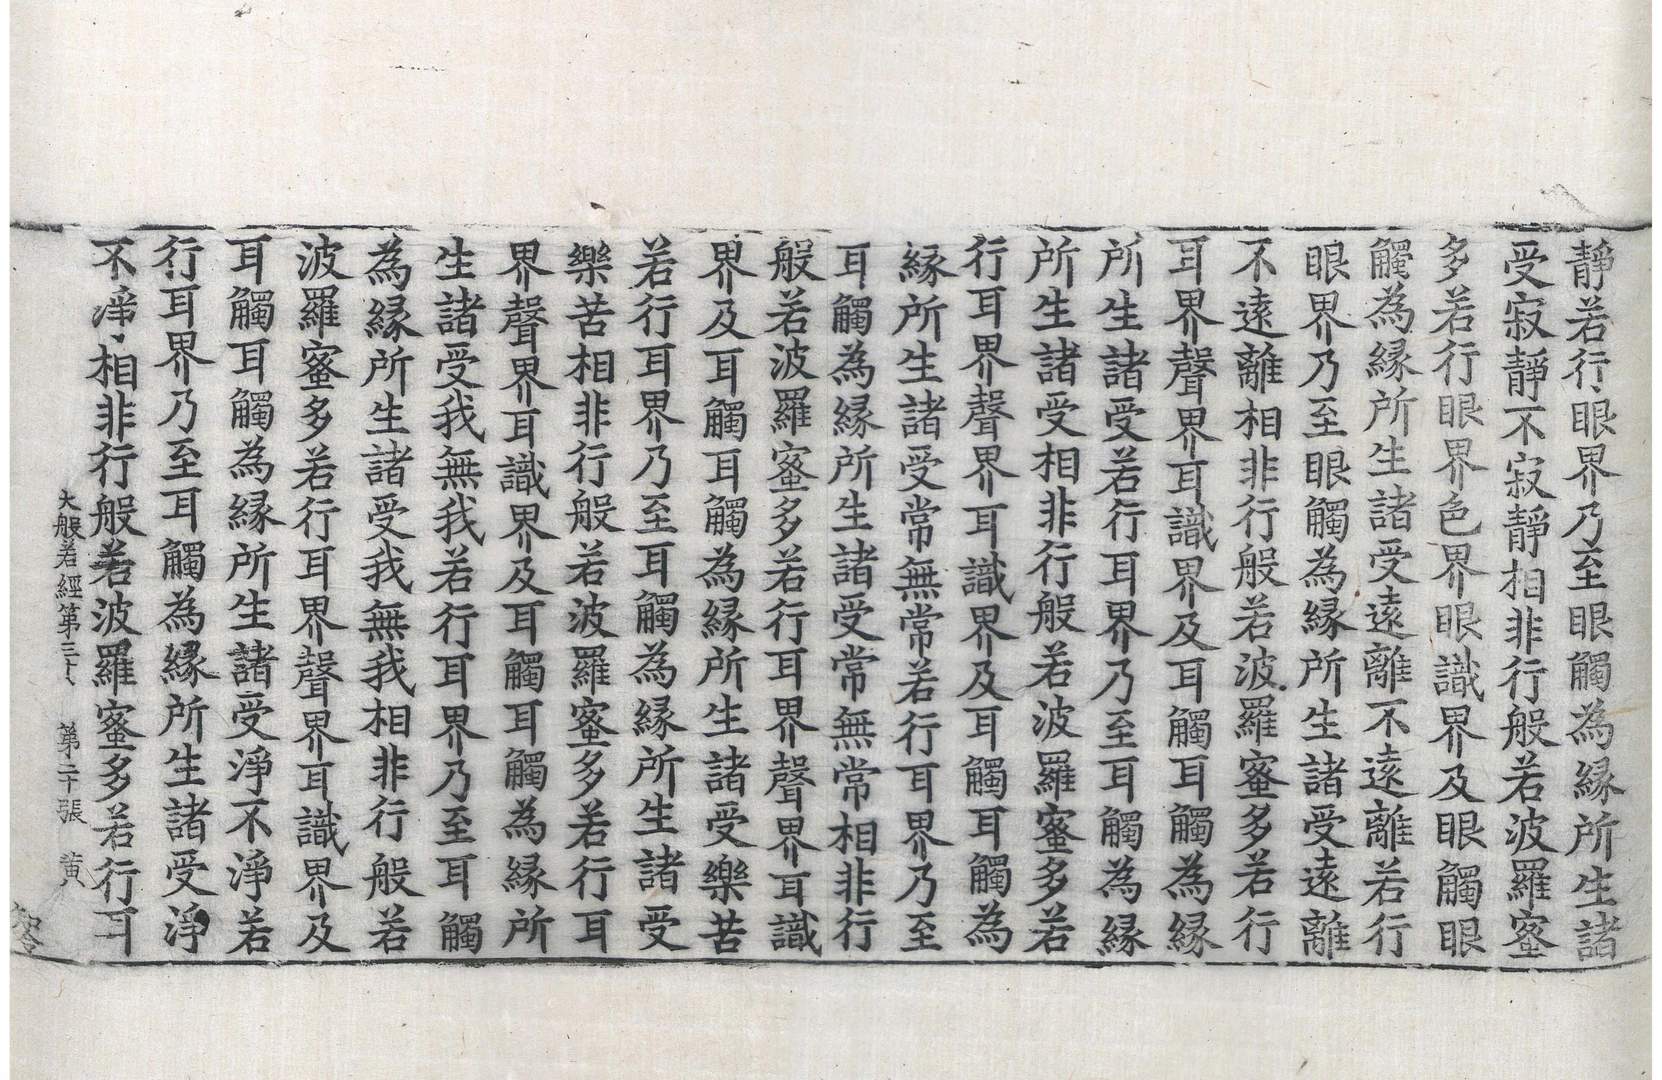 靜若行眼界乃至眼觸為緣所生諸
受寂靜不寂靜相非行般若波羅蜜
多若行眼界色界眼識界及眼觸眼
觸為緣所生諸受遠離不遠離若行
眼界乃至眼觸為緣所生諸受遠離
不遠離相非行般若波羅蜜多若行
耳界聲界耳識界及耳觸耳觸為緣
所生諸受若行耳界乃至耳觸為緣
所生諸受相非行般若波羅蜜多若
行耳界聲界耳識界及耳觸耳觸為
緣所生諸受常無常若行耳界乃至
耳觸為緣所生諸受常無常相非行
般若波羅蜜多若行耳界聲界耳識
界及耳觸耳觸為緣所生諸受樂苦
若行耳界乃至耳觸為緣所生諸受
樂苦相非行般若波羅蜜多若行耳
界聲界耳識界及耳觸耳觸為緣所
生諸受我無我若行耳界乃至耳觸
為緣所生諸受我無我相非行般若
波羅蜜多若行耳界聲界耳識界及
耳觸耳觸為緣所生諸受淨不淨若
行耳界乃至耳觸為緣所生諸受淨
不淨相非行般若波羅蜜多若行耳
大般若經第三十六 第二十張 黃